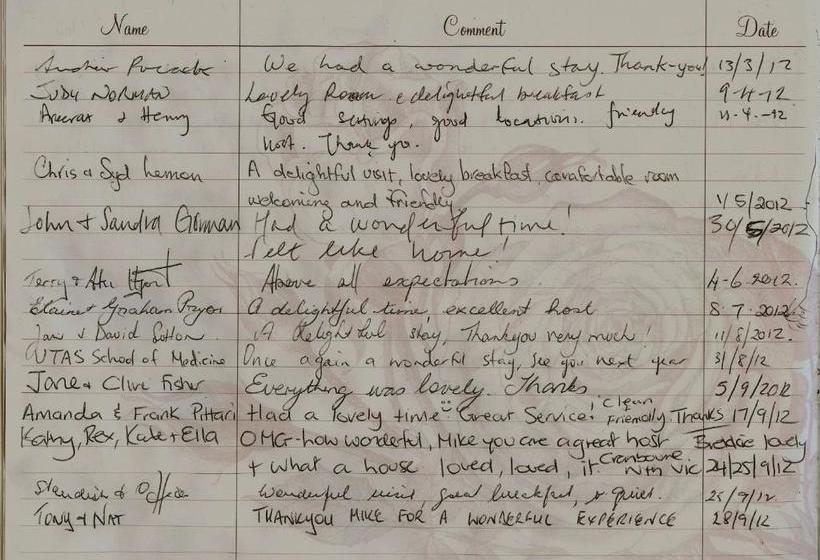 Name Comment Date
We had a wonderful stay. Thank-you! 13/3/12
JUDY NORMAN Lovely Room & delightful breakfast 9-4-12
& Henry Good settings, good locations. friendly 11-4-12
host. Thank you.
Chris & Syd Lemon A delightful visit, lovely breakfast, comfortable room
welcoming and friendly 1/5/2012
John & Sandra Gorman Had a wonderful time! 30/5/2012
felt like home!
Terry & Above all expectations 4-6-2012.
Elaine & Graham Pryor A delightful time, excellent host 8.7.2012
Jan & David Sutton. A delightful stay, Thankyou very much! 11/8/2012.
UTAS School of Medicine Once again a wonderful stay, see you next year 31/8/12
Jane & Clive Fisher Everything was lovely. Thanks 5/9/2012
Amanda & Frank Pittari Had a lovely time Great Service! Clean Friendly. Thanks 17/9/12
Kathy, Rex, Kate & Ella OMG-how wonderful, Mike you are a great host Breakie lovely
+ what a house loved, loved, it Cranbourne Nth Vic 24/25/9/12
Wonderful visit, great breakfast, & quiet. 25/9/12.
TONY & NAT THANKYOU MIKE FOR A WONDERFUL EXPERIENCE 28/9/12